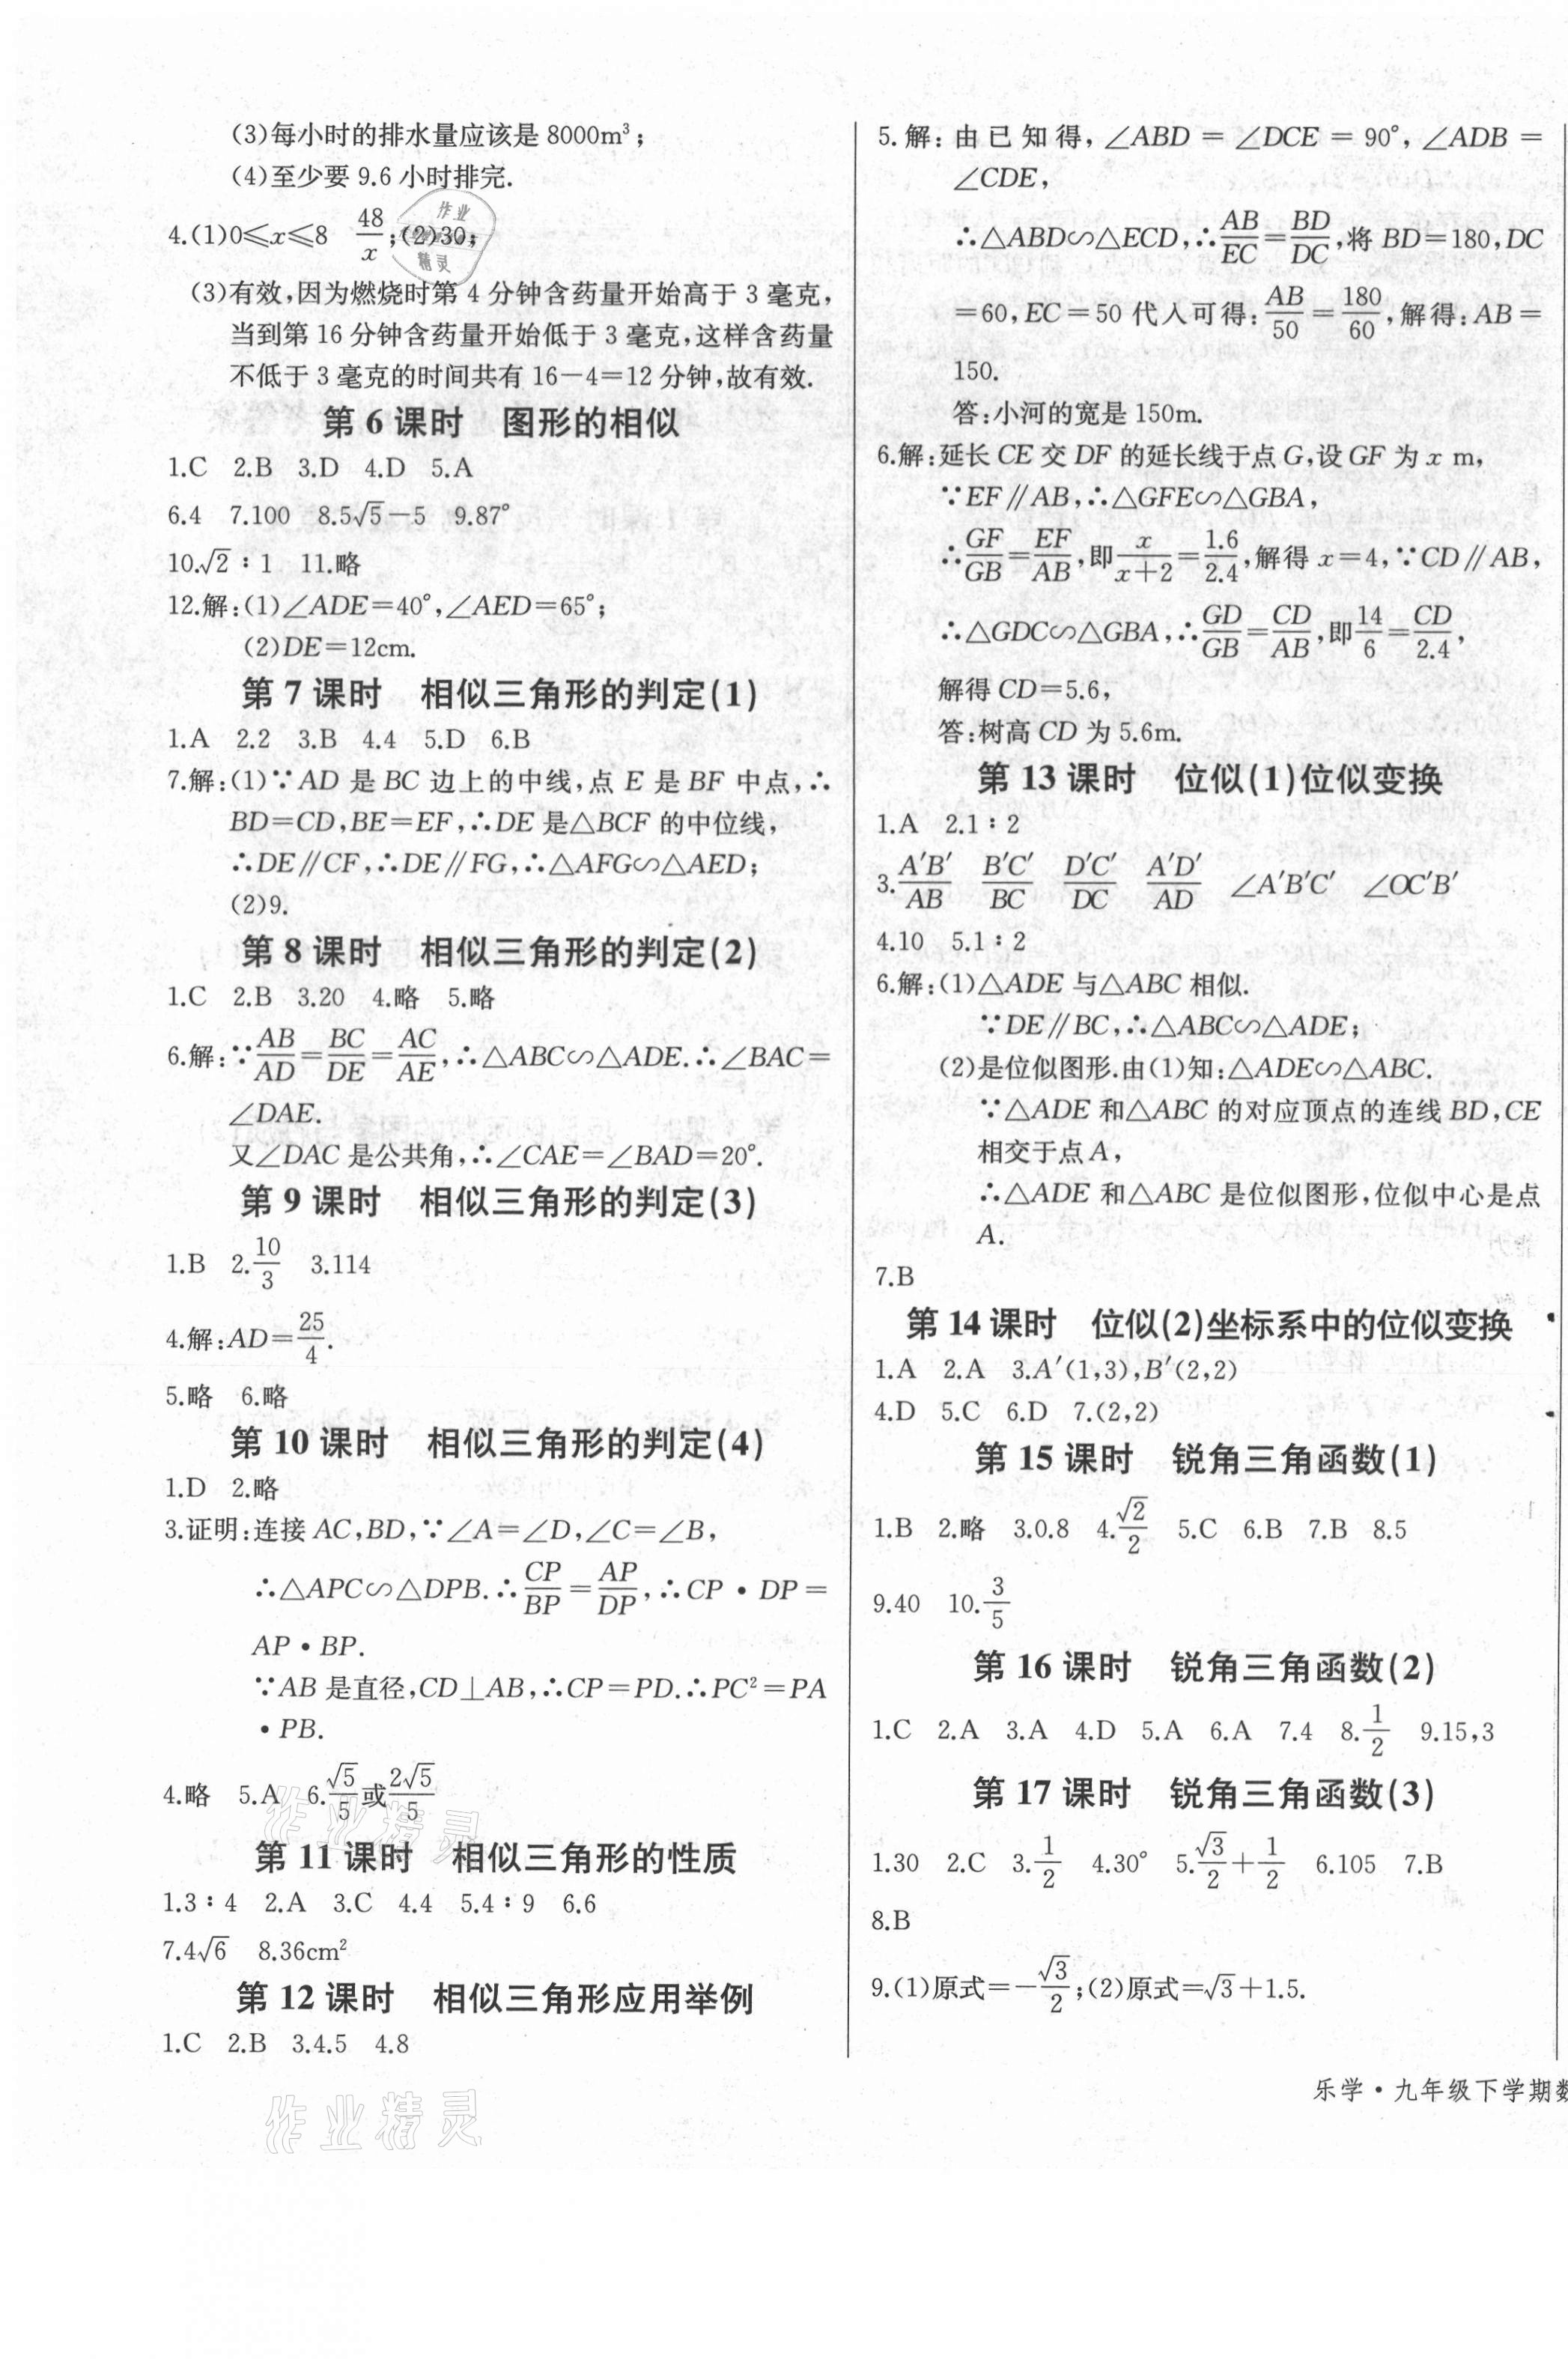 (3)每小时的排水量应该是 8000m³;
(4)至少要 9.6 小时排完.
4.(1)0≤x≤8 48/x;(2)30;
(3)有效,因为燃烧时第 4 分钟含药量开始高于 3 毫克,
当到第 16 分钟含药量开始低于 3 毫克,这样含药量
不低于 3 毫克的时间共有 16-4=12 分钟,故有效.
第 6 课时 图形的相似
1.C 2.B 3.D 4.D 5.A
6.4 7.100 8.5√5-5 9.87°
10.√2∶1 11.略
12.解:(1)∠ADE=40°,∠AED=65°;
(2)DE=12cm.
第 7 课时 相似三角形的判定(1)
1.A 2.2 3.B 4.4 5.D 6.B
7.解:(1)∵AD 是 BC 边上的中线,点 E 是 BF 中点,∴
BD=CD,BE=EF,∴DE 是△BCF 的中位线,
∴DE∥CF,∴DE∥FG,∴△AFG∽△AED;
(2)9.
第 8 课时 相似三角形的判定(2)
1.C 2.B 3.20 4.略 5.略
6.解:∵AB/AD=BC/DE=AC/AE,∴△ABC∽△ADE.∴∠BAC=
∠DAE.
又∠DAC 是公共角,∴∠CAE=∠BAD=20°.
第 9 课时 相似三角形的判定(3)
1.B 2.10/3 3.114
4.解:AD=25/4.
5.略 6.略
第 10 课时 相似三角形的判定(4)
1.D 2.略
3.证明:连接 AC,BD,∵∠A=∠D,∠C=∠B,
∴△APC∽△DPB.∴CP/BP=AP/DP,∴CP•DP=
AP•BP.
∵AB 是直径,CD⊥AB,∴CP=PD.∴PC²=PA
•PB.
4.略 5.A 6.√5/5或2√5/5
第 11 课时 相似三角形的性质
1.3∶4 2.A 3.C 4.4 5.4∶9 6.6
7.4√6 8.36cm²
第 12 课时 相似三角形应用举例
1.C 2.B 3.4.5 4.8
5.解:由已知得,∠ABD=∠DCE=90°,∠ADB=
∠CDE,
∴△ABD∽△ECD,∴AB/EC=BD/DC,将 BD=180,DC
=60,EC=50 代入可得:AB/50=180/60,解得:AB=
150.
答:小河的宽是 150m.
6.解:延长 CE 交 DF 的延长线于点 G,设 GF 为 x m,
∵EF∥AB,∴△GFE∽△GBA,
∴GF/GB=EF/AB,即x/x+2=1.6/2.4,解得 x=4,∵CD∥AB,
∴△GDC∽△GBA,∴GD/GB=CD/AB,即14/6=CD/2.4,
解得 CD=5.6,
答:树高 CD 为 5.6m.
第 13 课时 位似(1)位似变换
1.A 2.1∶2
3.A′B′/AB B′C′/BC D′C′/DC A′D′/AD ∠A′B′C′ ∠OC′B′
4.10 5.1∶2
6.解:(1)△ADE 与△ABC 相似.
∵DE∥BC,∴△ABC∽△ADE;
(2)是位似图形.由(1)知:△ADE∽△ABC.
∵△ADE 和△ABC 的对应顶点的连线 BD,CE
相交于点 A,
∴△ADE 和△ABC 是位似图形,位似中心是点
A.
7.B
第 14 课时 位似(2)坐标系中的位似变换
1.A 2.A 3.A′(1,3),B′(2,2)
4.D 5.C 6.D 7.(2,2)
第 15 课时 锐角三角函数(1)
1.B 2.略 3.0.8 4.√2/2 5.C 6.B 7.B 8.5
9.40 10.3/5
第 16 课时 锐角三角函数(2)
1.C 2.A 3.A 4.D 5.A 6.A 7.4 8.1/2 9.15,3
第 17 课时 锐角三角函数(3)
1.30 2.C 3.1/2 4.30° 5.√3/2+1/2 6.105 7.B
8.B
9.(1)原式=-√3/2;(2)原式=√3+1.5.
乐学·九年级下学期
作业精灵
作业精灵
作业
精灵